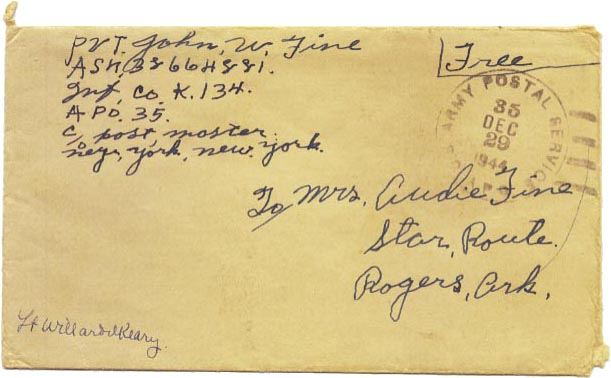 Pvt. John, W, Fine
ASN, 38664881.
Inf, Co, K. 134.
A PO. 35.
C/o post, master
New, york, new. york.
Free
U.S. ARMY POSTAL SERVICE
35
DEC
29
1944
To Mrs, Audie Fine
Star, Route.
Rogers, Ark.
Lt Willard Keary.